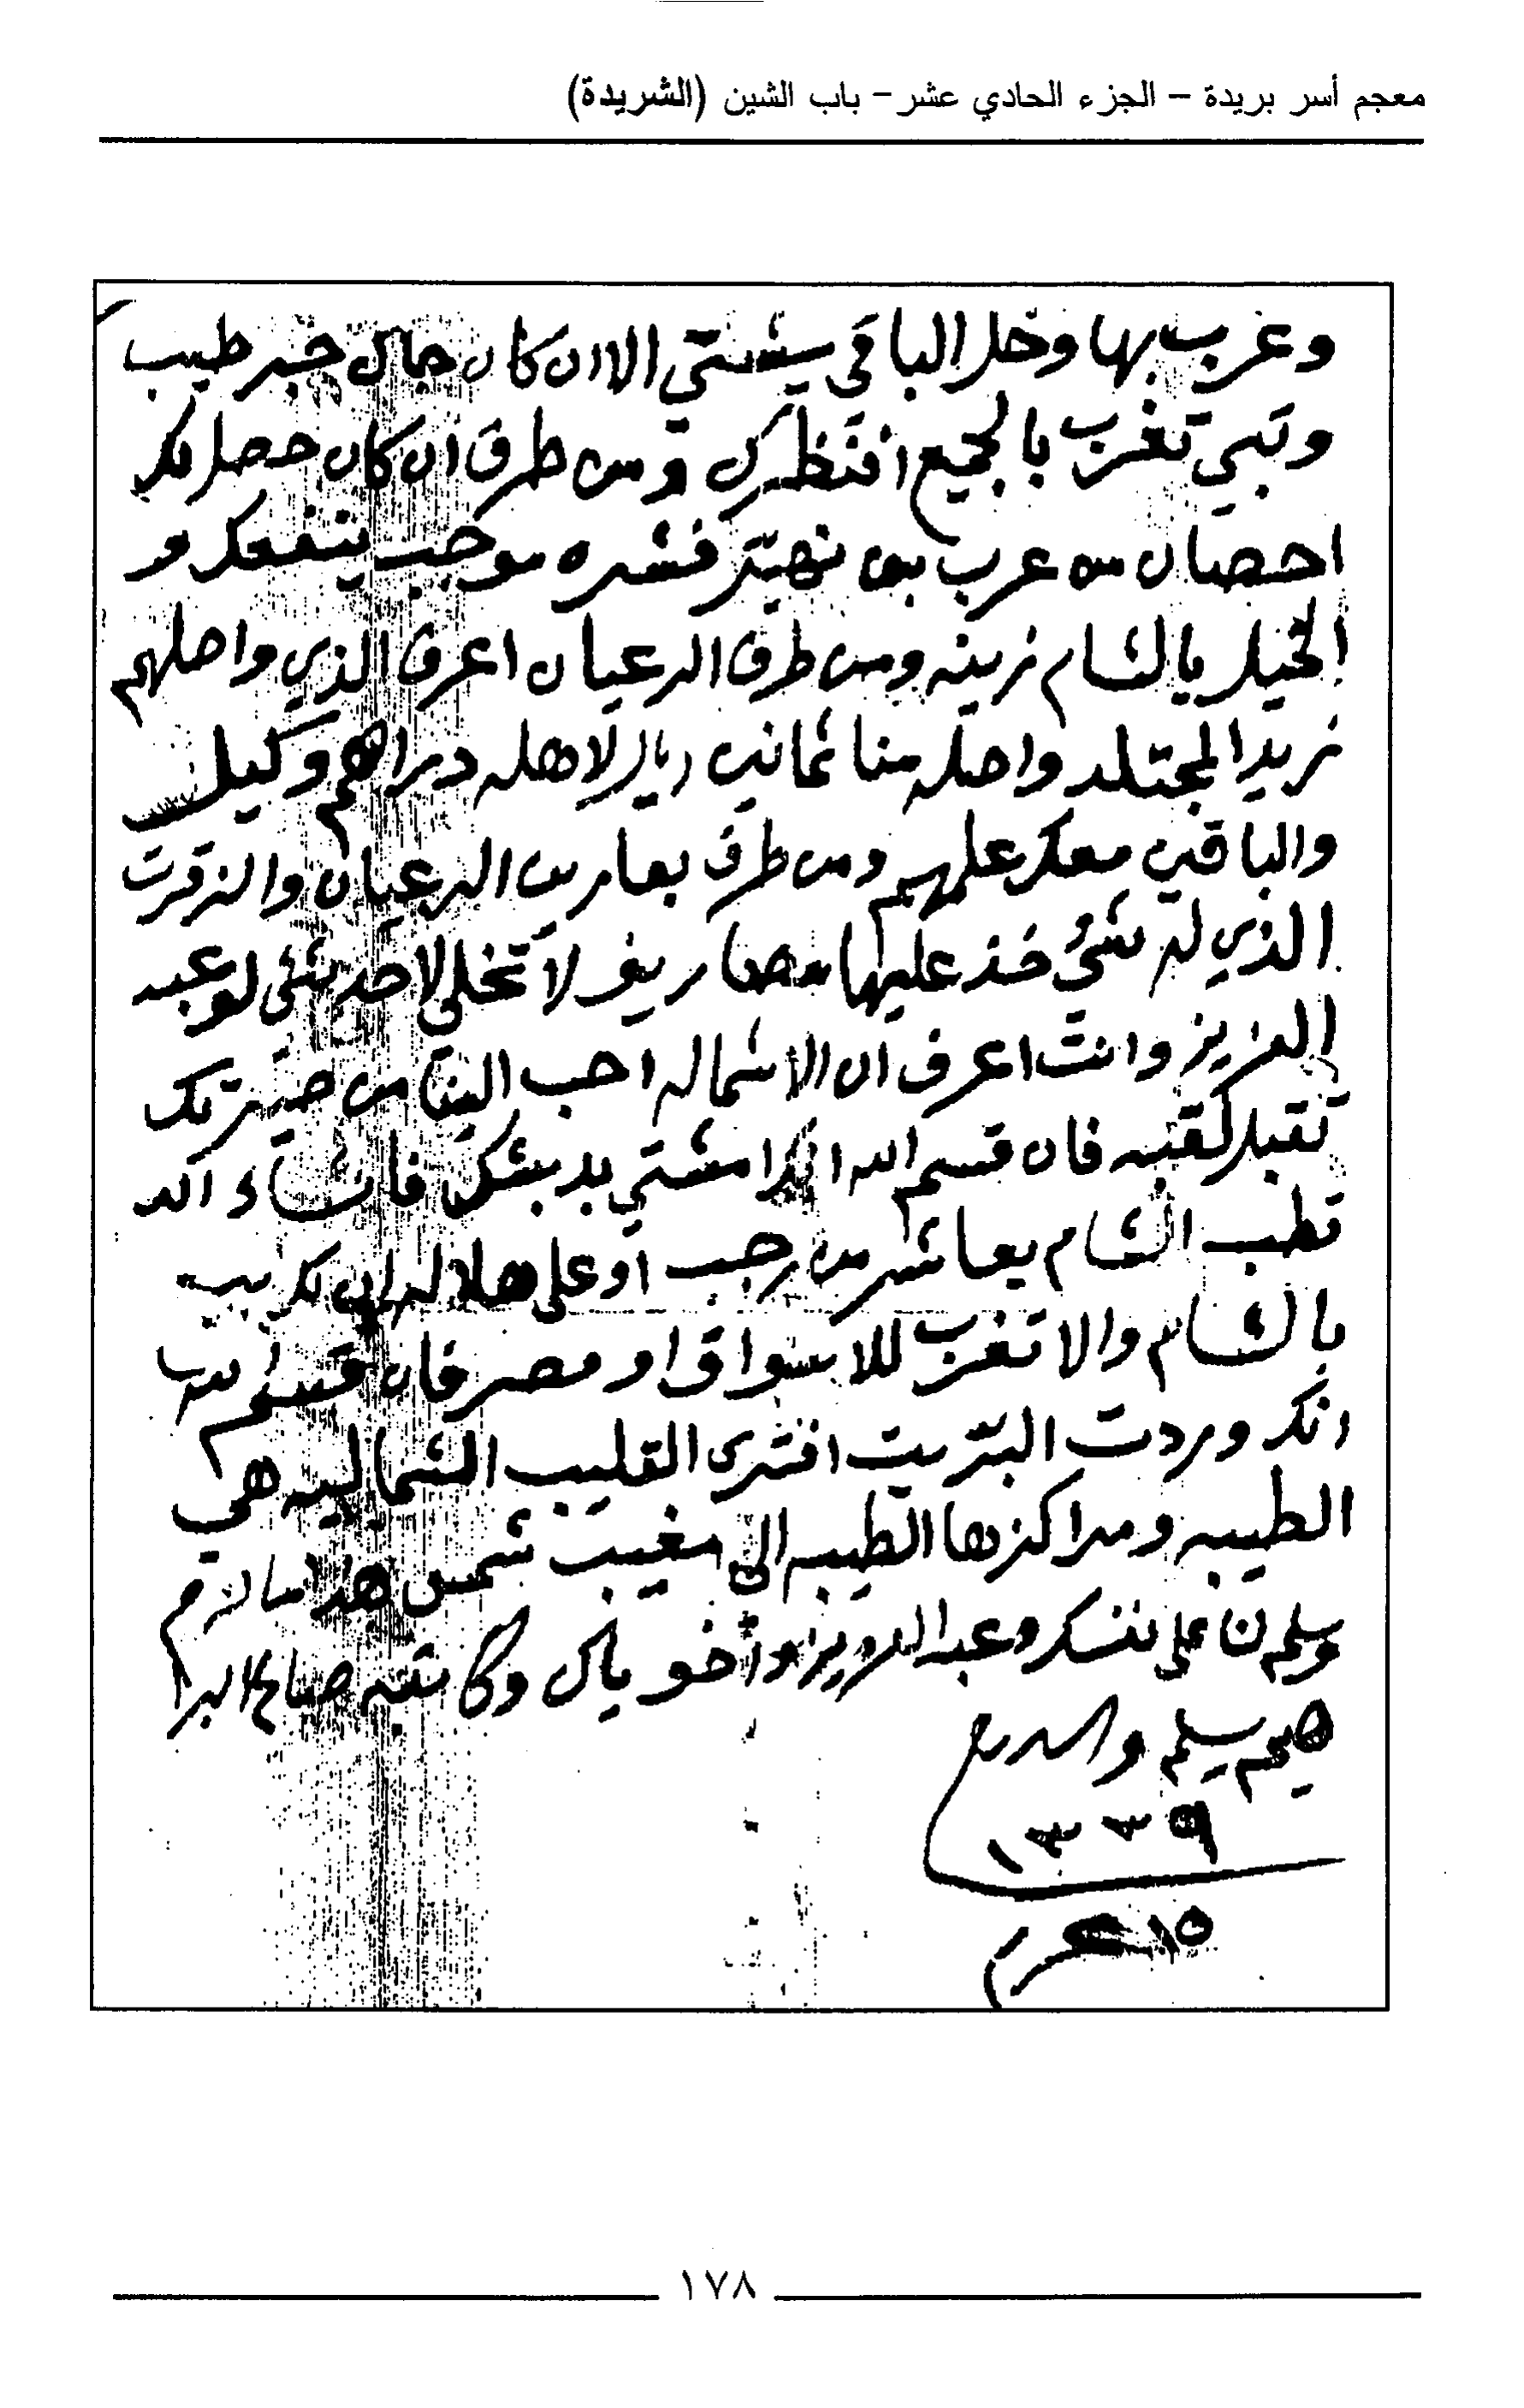 معجم أسر بريدة – الجزء الحادي عشر – باب الشين (الشريدة)
وغرب بها وخل الباقي يشتي الا ان كان جاك خبر طيب
وتبي تغرب بالجميع انتظرك ومن طرف ان كان حصل لك
احصان من عرب فشره موجب ينفعك و
الخيل بالشام زينه ومن طرف الرعيان اعرف الذي واصلهم
زيد المجتلد واصله منا ثمانين ريال لاهله دراهم وكيل
والباقين معك علمهم ومن طرف بعارين الرعيان والزقرت
الذي له شيء خذ عليها مصاريف لا تخلي لاحد شيء لو عبد
العزيز وانت اعرف ان الاشماله احب الينا من
فان قسم الله انك مشتي فان شاء الله
الشام بعاشر من رجب او على هلاله
بالشام والا تغرب للاسواق او مصر فان قسم الله
انك وردت البتريت اشرى القليب الشماليه هي
الطيبه ومراكزها الطيبه الى مغيب شمس هذا ما لزم
وسلم لنا على نفسك وعبد العزيز واخوياك وكاتبه صالح البرا
هيم يسلم والسلام
١٣٣٩
١٥ محرم
١٧٨